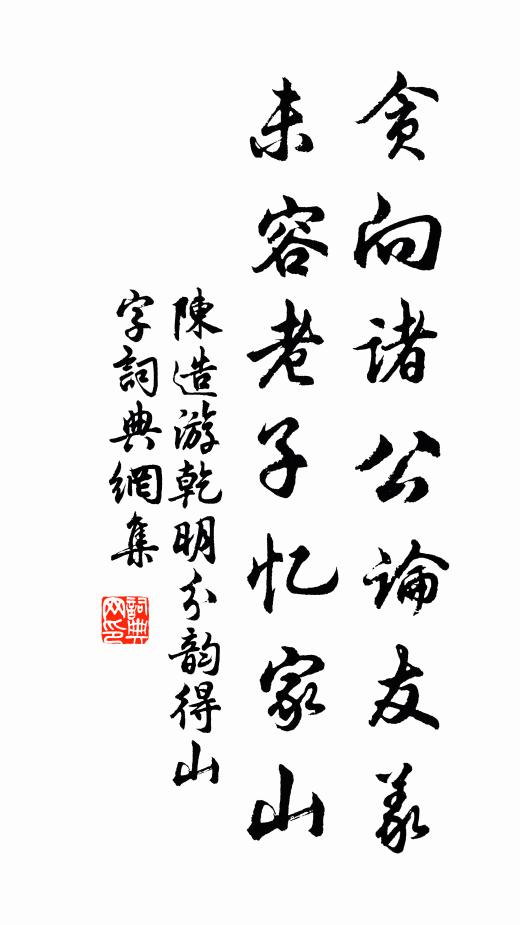 贪向诸公論友义
未容老子忆家山
陳造游乾明分韵得山
字詞典網集
詞典网印